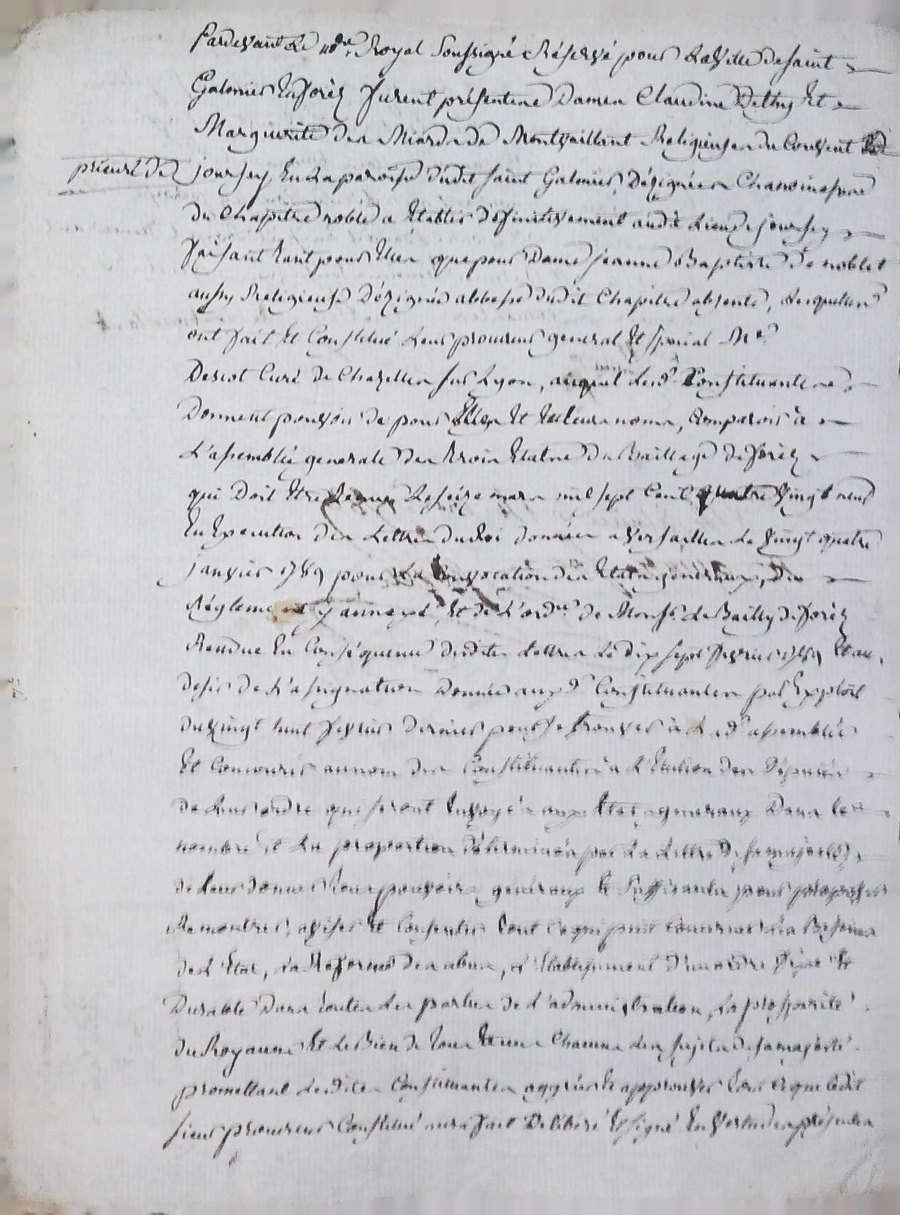 Pardevant le no.re Royal soussigné Réservé pour la ville de saint
Galmier en forêz furent présentes Dames Claudine Bethy Et
Marguerite des Miards de Montvaillant Religieuses du Couvent
prieuré de
jourcey En la paroisse dudit saint Galmier, Désignées Chanoinesses
du Chapitre noble a Etablir définitivement audit Lieu de jourcey
faisant tant pour Elles que pour Dame jeanne Baptiste de noblet
aussy Religieuse Désignée abbesse dudit Chapitre absente, Lesquelles
ont fait Et Constitué Leur procureur general Et spécial Me
Curé de Chazelles sur Lyon, auquel Lesd. Constituantes
Donnent pouvoir de pour Elles Et En leurs noms, comparoir à
L'assemblée generale des trois Etats du Baillage de forêz
qui Doit Etre tenue Le seize mars mil sept Cent quatre vingt neuf
En Execution des Lettres du Roi données a Versailles Le vingt quatre
janvier 1789 pour la Convocation des Etats généraux, du
Réglement y annexé, Et de L'ord.ce de Monsr. Le Bailly de forêz
Rendue En Conséquence desdites Lettres Le Dix sept fevrier 1789 Et au
desir de L'assignation Donnée auxd. Constituantes par Exploit
du vingt huit fevrier dernier pour se trouver à Lad. assemblée
Et Concourir au nom des Constituantes à L'Election des Députés
de Leur ordre qui seront Envoyés aux Etats generaux Dans le
nombre Et La proportion Déterminés par La Lettre de sa majesté,
de Leur donner tous pouvoirs généraux Et suffisants pour proposer
Remontrer, aviser Et Consentir tout ce qui peut concerner Les Besoins
de L'Etat, La Reforme des abus, L'Etablissement d'un ordre fixe Et
Durable Dans toutes Les parties de L'administration, La prosperité
du Royaume Et Le Bien de tous Et un Chacun des sujets de sa majesté
promettant Lesdites Constituantes agréer Et approuver tout ce que Ledit
sieur procureur Constitué aura fait Deliberé Et signé En vertu des présentes